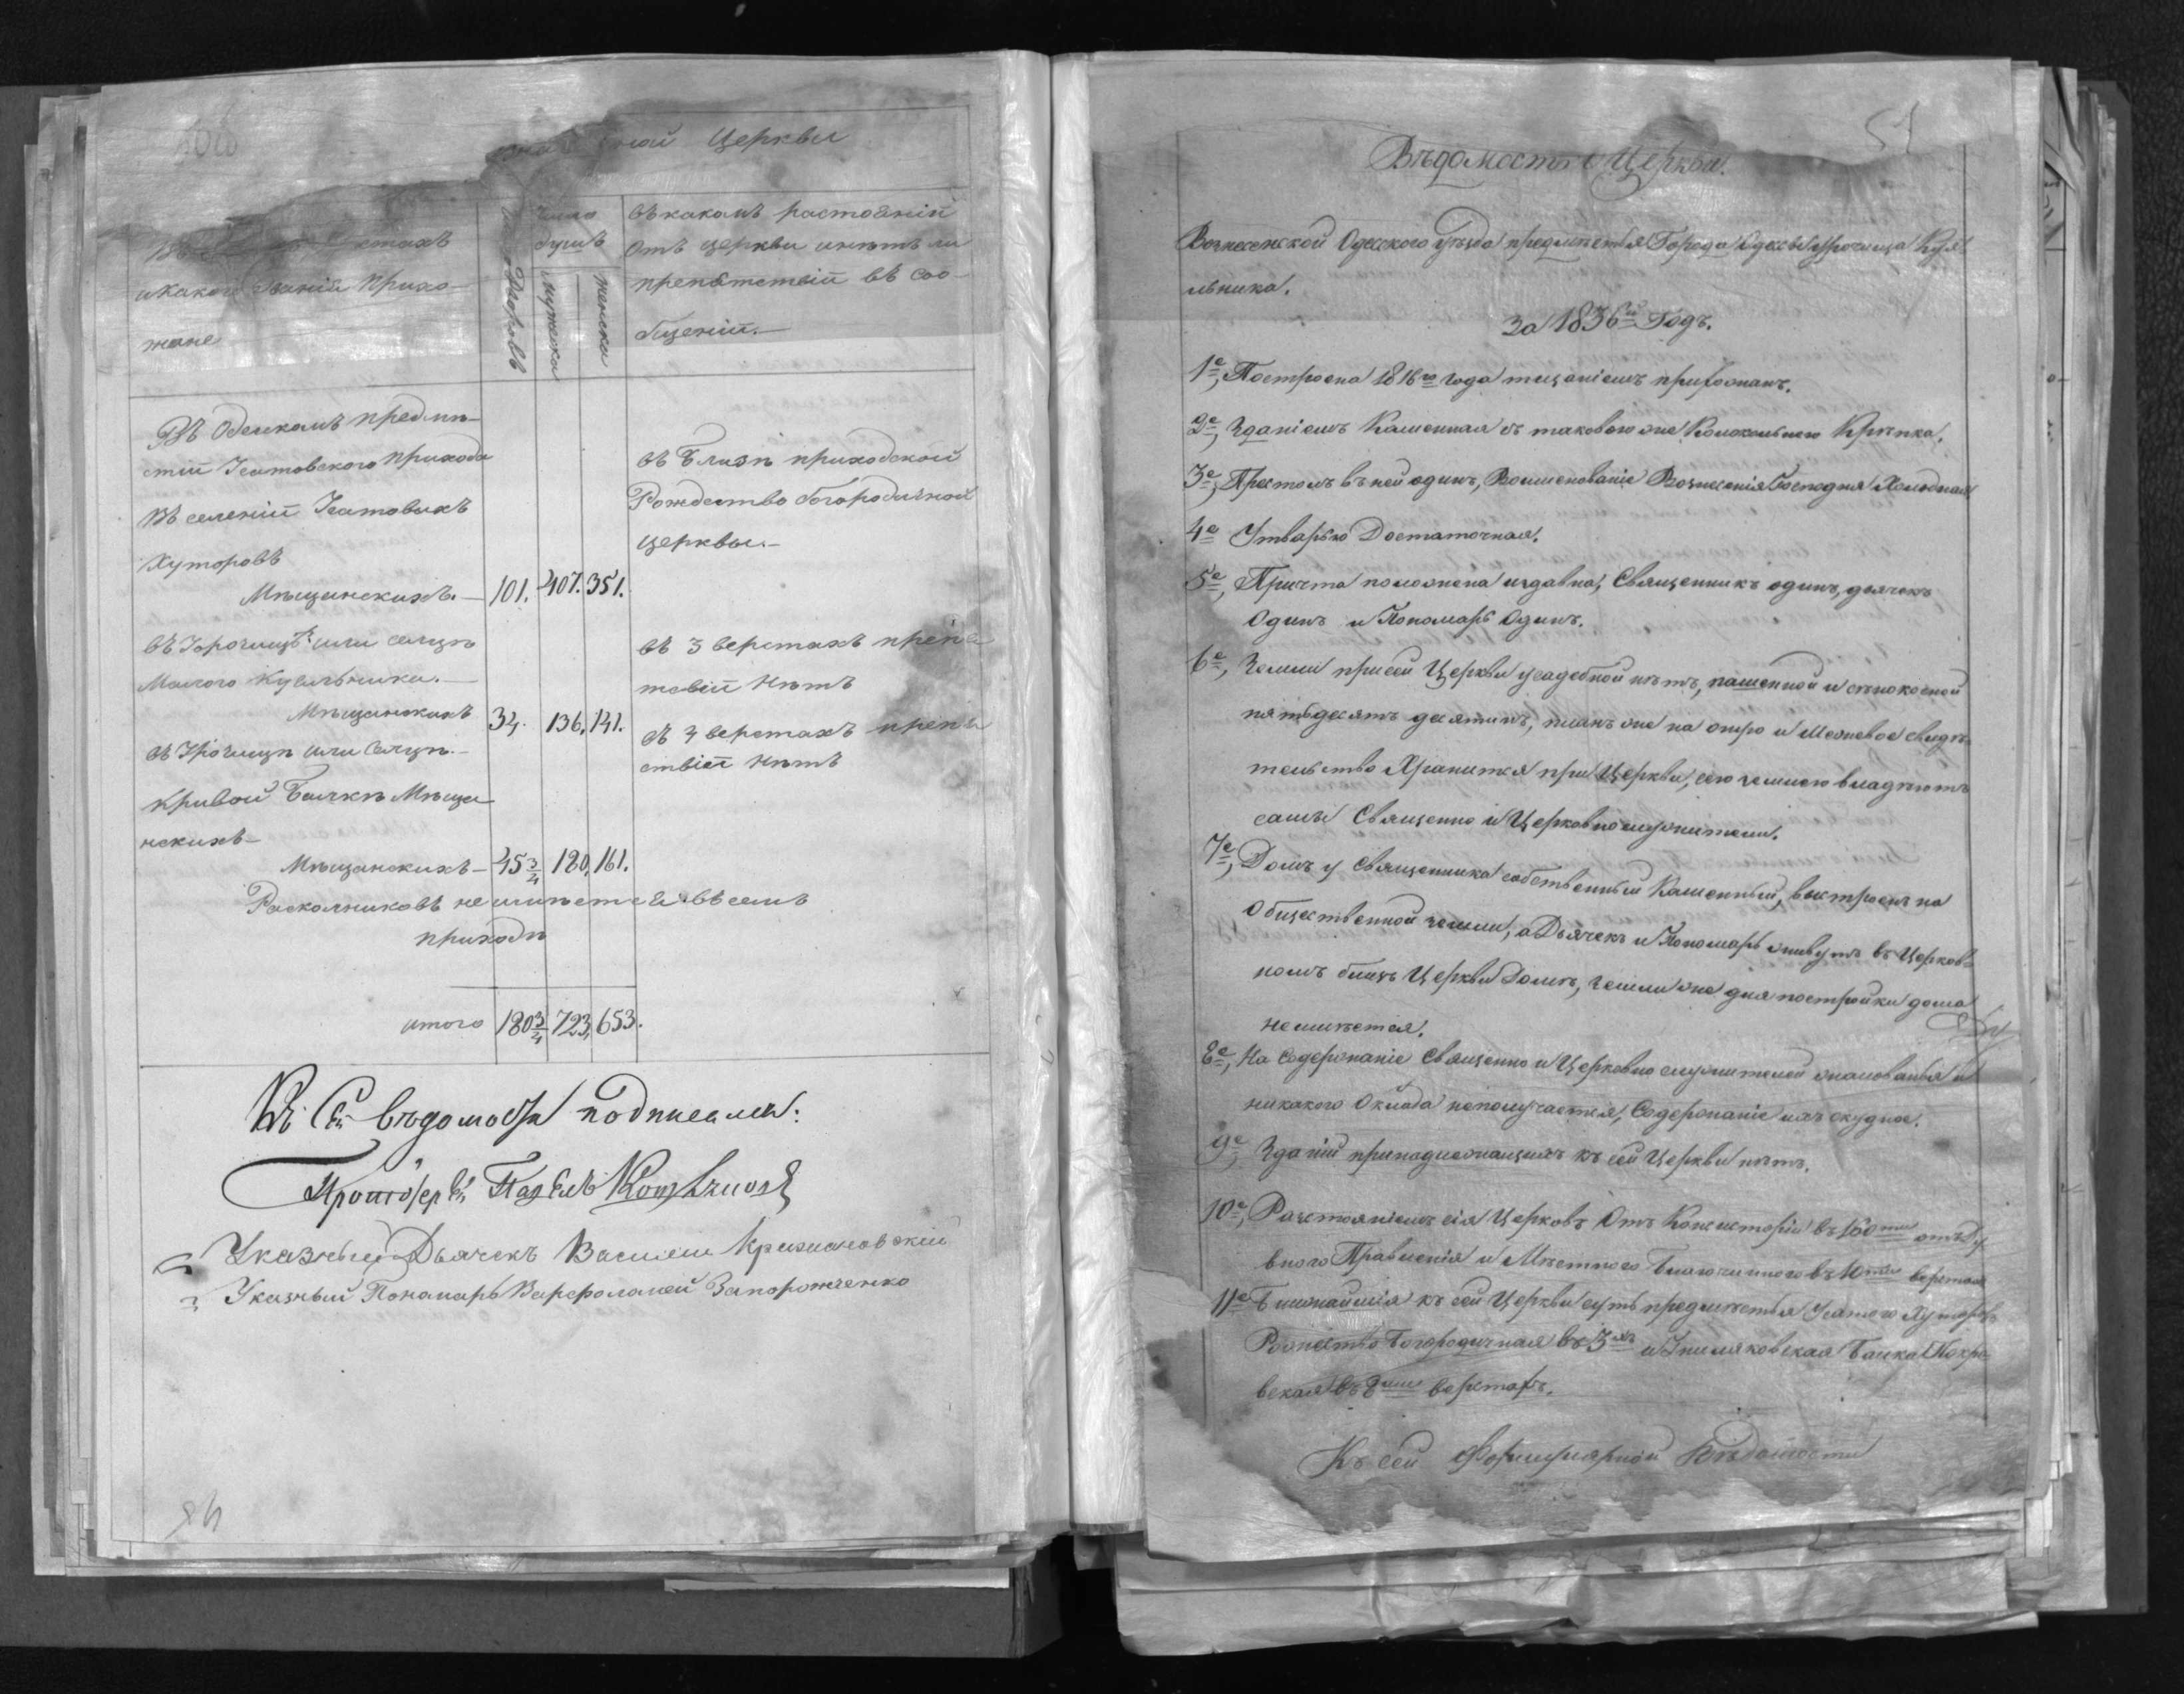 Церкви
Въ какомъ растоянии
душъ
отъ церкви иметъ ли
Дворовъ
мужеска
женска
препятствий въ соо-
и какого звания прихо-
жане
бщении.—
Въ Одескомъ предмѣ-
стии Усатовского прихода
въ Близи приходской
Въ селении Усатовыхъ
Рождество Богородичной
Хуторовъ
церквы.—
Мѣщанскихъ.— 101. 407. 351.
въ Урочищѣ или селцѣ
въ 3 верстахъ препя
Малого Куяльника.—
тствий нѣтъ
Мѣщанскихъ 34. 136. 141.
въ Урочищѣ или Селцѣ.—
въ 4 верстахъ препя
ствий нѣтъ
Кривой Балкѣ Мѣща
нскихъ—
Мѣщанскихъ— 45 3/4 180. 161.
Расколниковъ неимѣется въ семъ
приходѣ
итого 180 3/4 723. 653.
Къ Сей вѣдомости подписали:
Протоіерей Павелъ
Указный Дьячекъ Василий Крижановский
Указный Пономарь Варфоломей Запорожченко
51
Вѣдомость о Церкви.
Вознесенской Одесского уѣзда предмѣстья Города Одессы урочища Куя-
льника.
За 1836й Годъ.
1е, Построена 1816го года тщаніемъ прихожанъ.
2е, Зданіемъ Каменная съ таковою же Колокольнею Крѣпка.
3е, Престолъ въ ней одинъ, Воименованіе Вознесенія Господня Холодная
4е Утварью Достаточная.
5е, Причта положена издавна, Священникъ одинъ, дьячекъ
Одинъ и Пономарь Одинъ.
6е, Земли при сей Церкви усадебной нѣтъ, пашенной и сѣнокосной
пятьдесятъ десятинъ, планъ же на оную и Межевое свидѣ-
тельство Хранится при Церкви, сею землею владѣютъ
самы Священно и Церковнослужители.
7е, Домъ у Священника собственный Каменный, выстроенъ на
Общественной земли, а Дьячекъ и Пономарь живутъ въ Церков-
номъ близъ Церкви Домѣ, земли же для постройки дома
неимѣется.
8е, На Содержаніе Священно и Церковно служителей жалованья и
никакого Оклада неполучается, Содержаніе ихъ скудное.
9е, Зданій принадлежащихъ къ сей Церкви нѣтъ.
10е, Разстояніемъ сія Церковъ Отъ Консисторіи въ 160ти отъ Ду
внаго Правленія и Мѣстного Благочинного въ 10ти верстахъ
11е Ближайшія къ сей Церкви суть предмѣстья Усатого Хуторовъ
Рожество Богородичная въ 3хъ и Балка Покро
вская въ 8ми верстахъ.
Къ сей Формулярной Вѣдомости